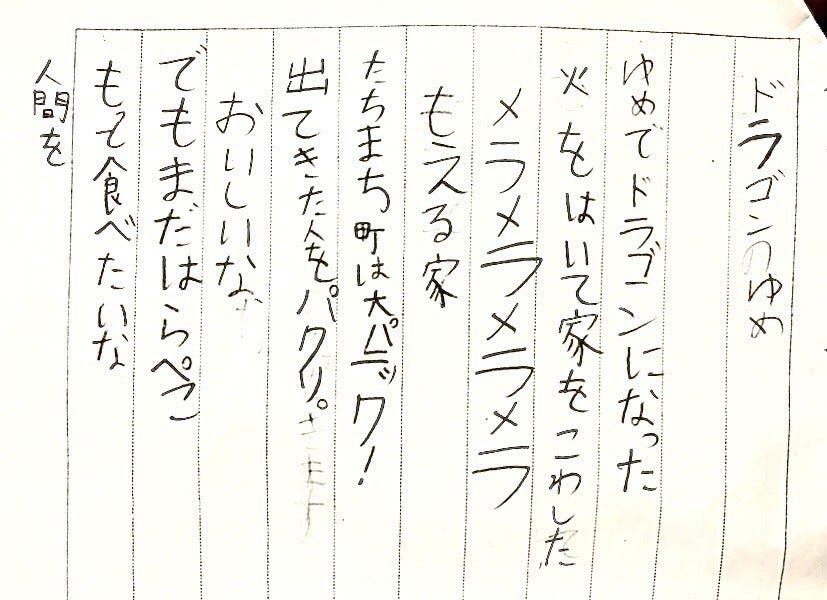 ドラゴンのゆめ
ゆめでドラゴンになった
火をはいて家をこわした
メラメラメラメラ
もえる家
たちまち町は大パニック!
出てきた人をパクリ。
おいしいな
でもまだはらぺこ
もっと食べたいな
人間を